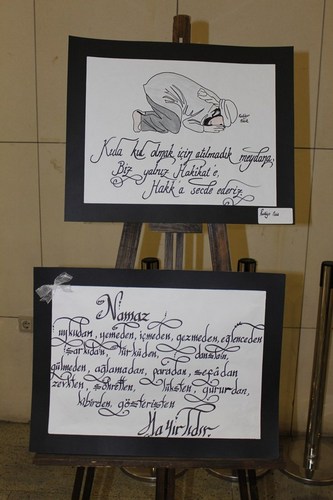 Kula kul olmak için atılmadık meydana,
Biz yalnız Hakikat'e,
Hakk'a secde ederiz.
Namaz
uykudan, yemeden, içmeden, gezmeden, eğlenceden
şarkıdan, türküden, danstan,
gülmeden, ağlamadan, paradan, sefâdan
zevkten, şöhretten, lüksten, gururdan,
kibirden, gösterişten
Hayırlıdır.